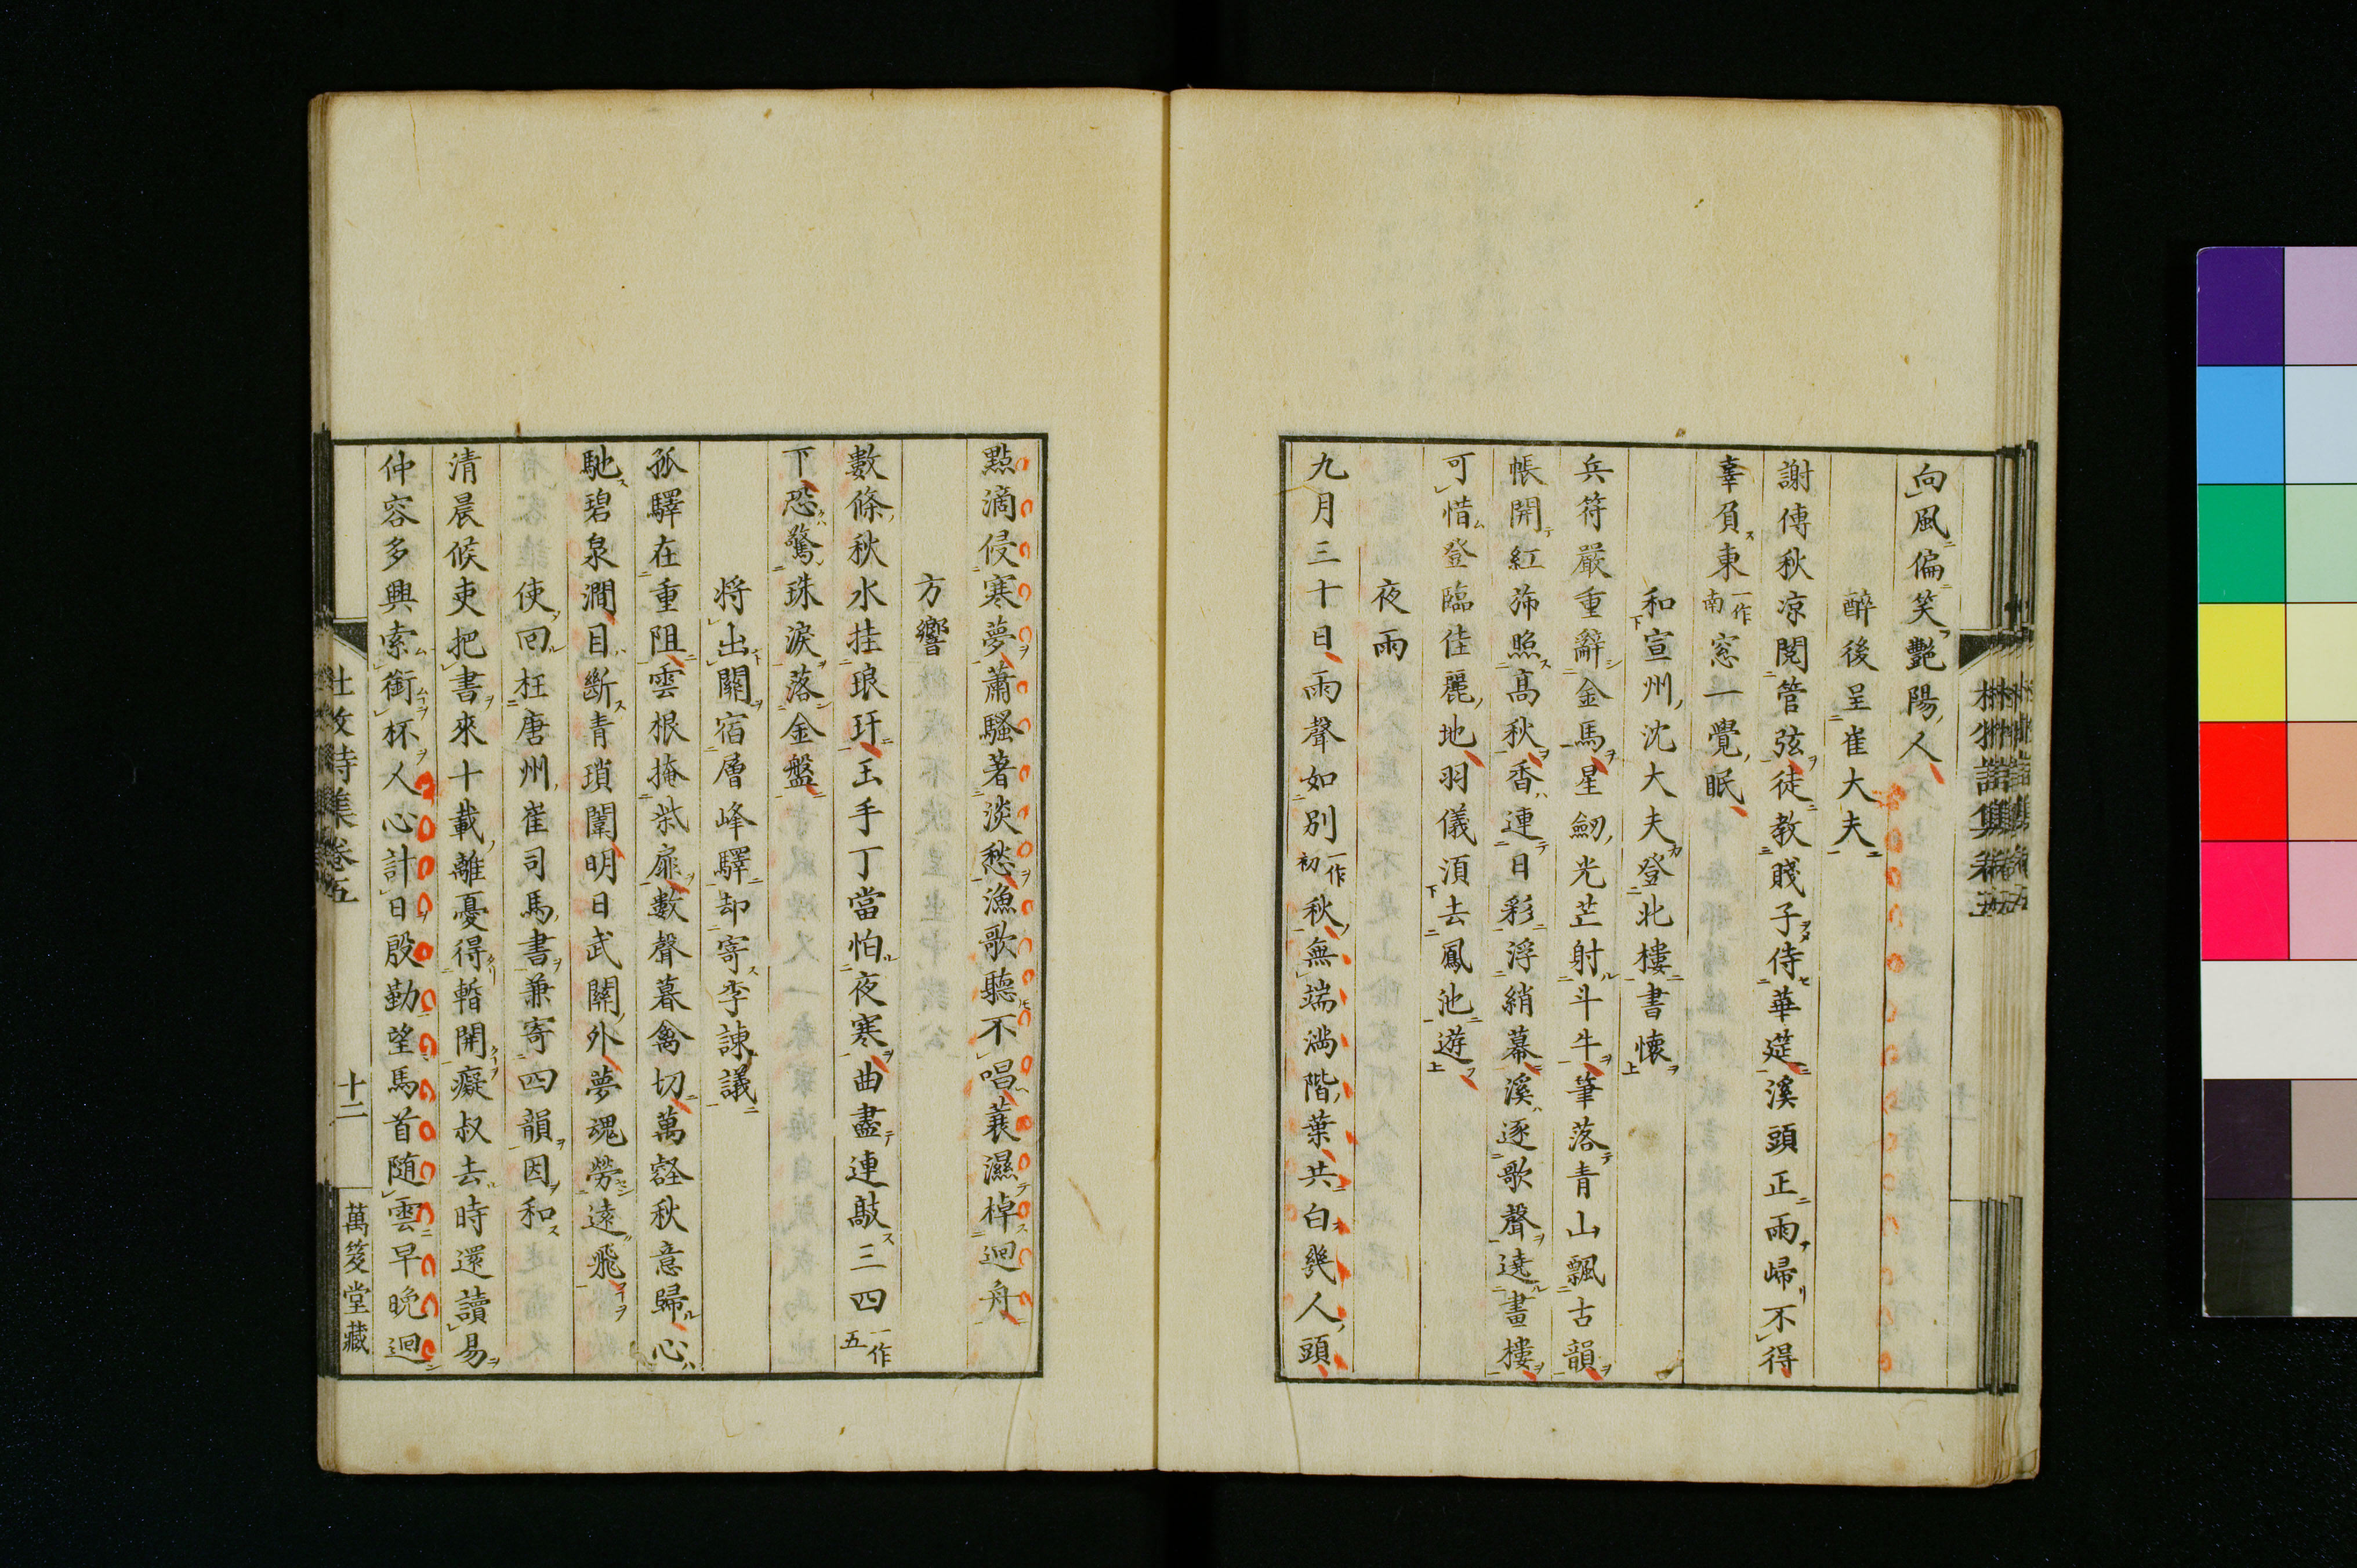 向風偏笑艷陽人
醉後呈崔大夫
謝傅秋凉閱管弦徒教賤子侍華筵溪頭正雨歸不得
辜負東一作南窓一覺眠
和宣州沈大夫登北樓書懷
兵符嚴重辭金馬星劒光芒射斗牛筆落青山飄古韻
帳開紅斾照髙秋香連日彩浮綃幕溪逐歌聲遶畫樓
可惜登臨佳麗地羽儀須去鳳池遊
夜雨
九月三十日雨聲如別一作初秋無端満階葉共白幾人頭
點滴侵寒夢蕭騷著淡愁漁歌聽不唱蓑濕棹迴舟
方響
數條秋水挂琅玕玉手丁當怕夜寒曲盡連敲三四一作五
下恐驚珠淚落金盤
将出關宿層峰驛却寄李諫議
孤驛在重阻雲根掩柴扉數聲暮禽切萬壑秋意歸心
馳碧泉澗目斷青瑣闈明日武關外夢魂勞遠飛
使回枉唐州崔司馬書兼寄四韻因和
清晨候吏把書來十載離憂得暫開癡叔去時還讀易
仲容多興索銜杯人心計日殷勤望馬首随雲早晩迴
杜牧詩集卷五
十二
萬笈堂藏